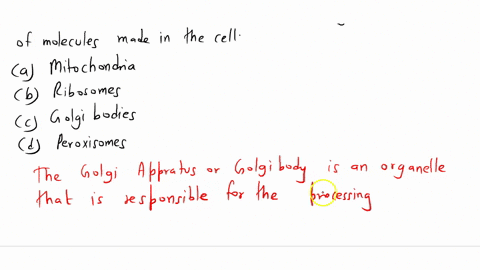 of molecules made in the cell.
(a) Mitochondria
(b) Ribosomes
(c) Golgi bodies
(d) Peroxisomes
The Golgi Appratus or Golgibody is an organelle
that is responsible for the processing